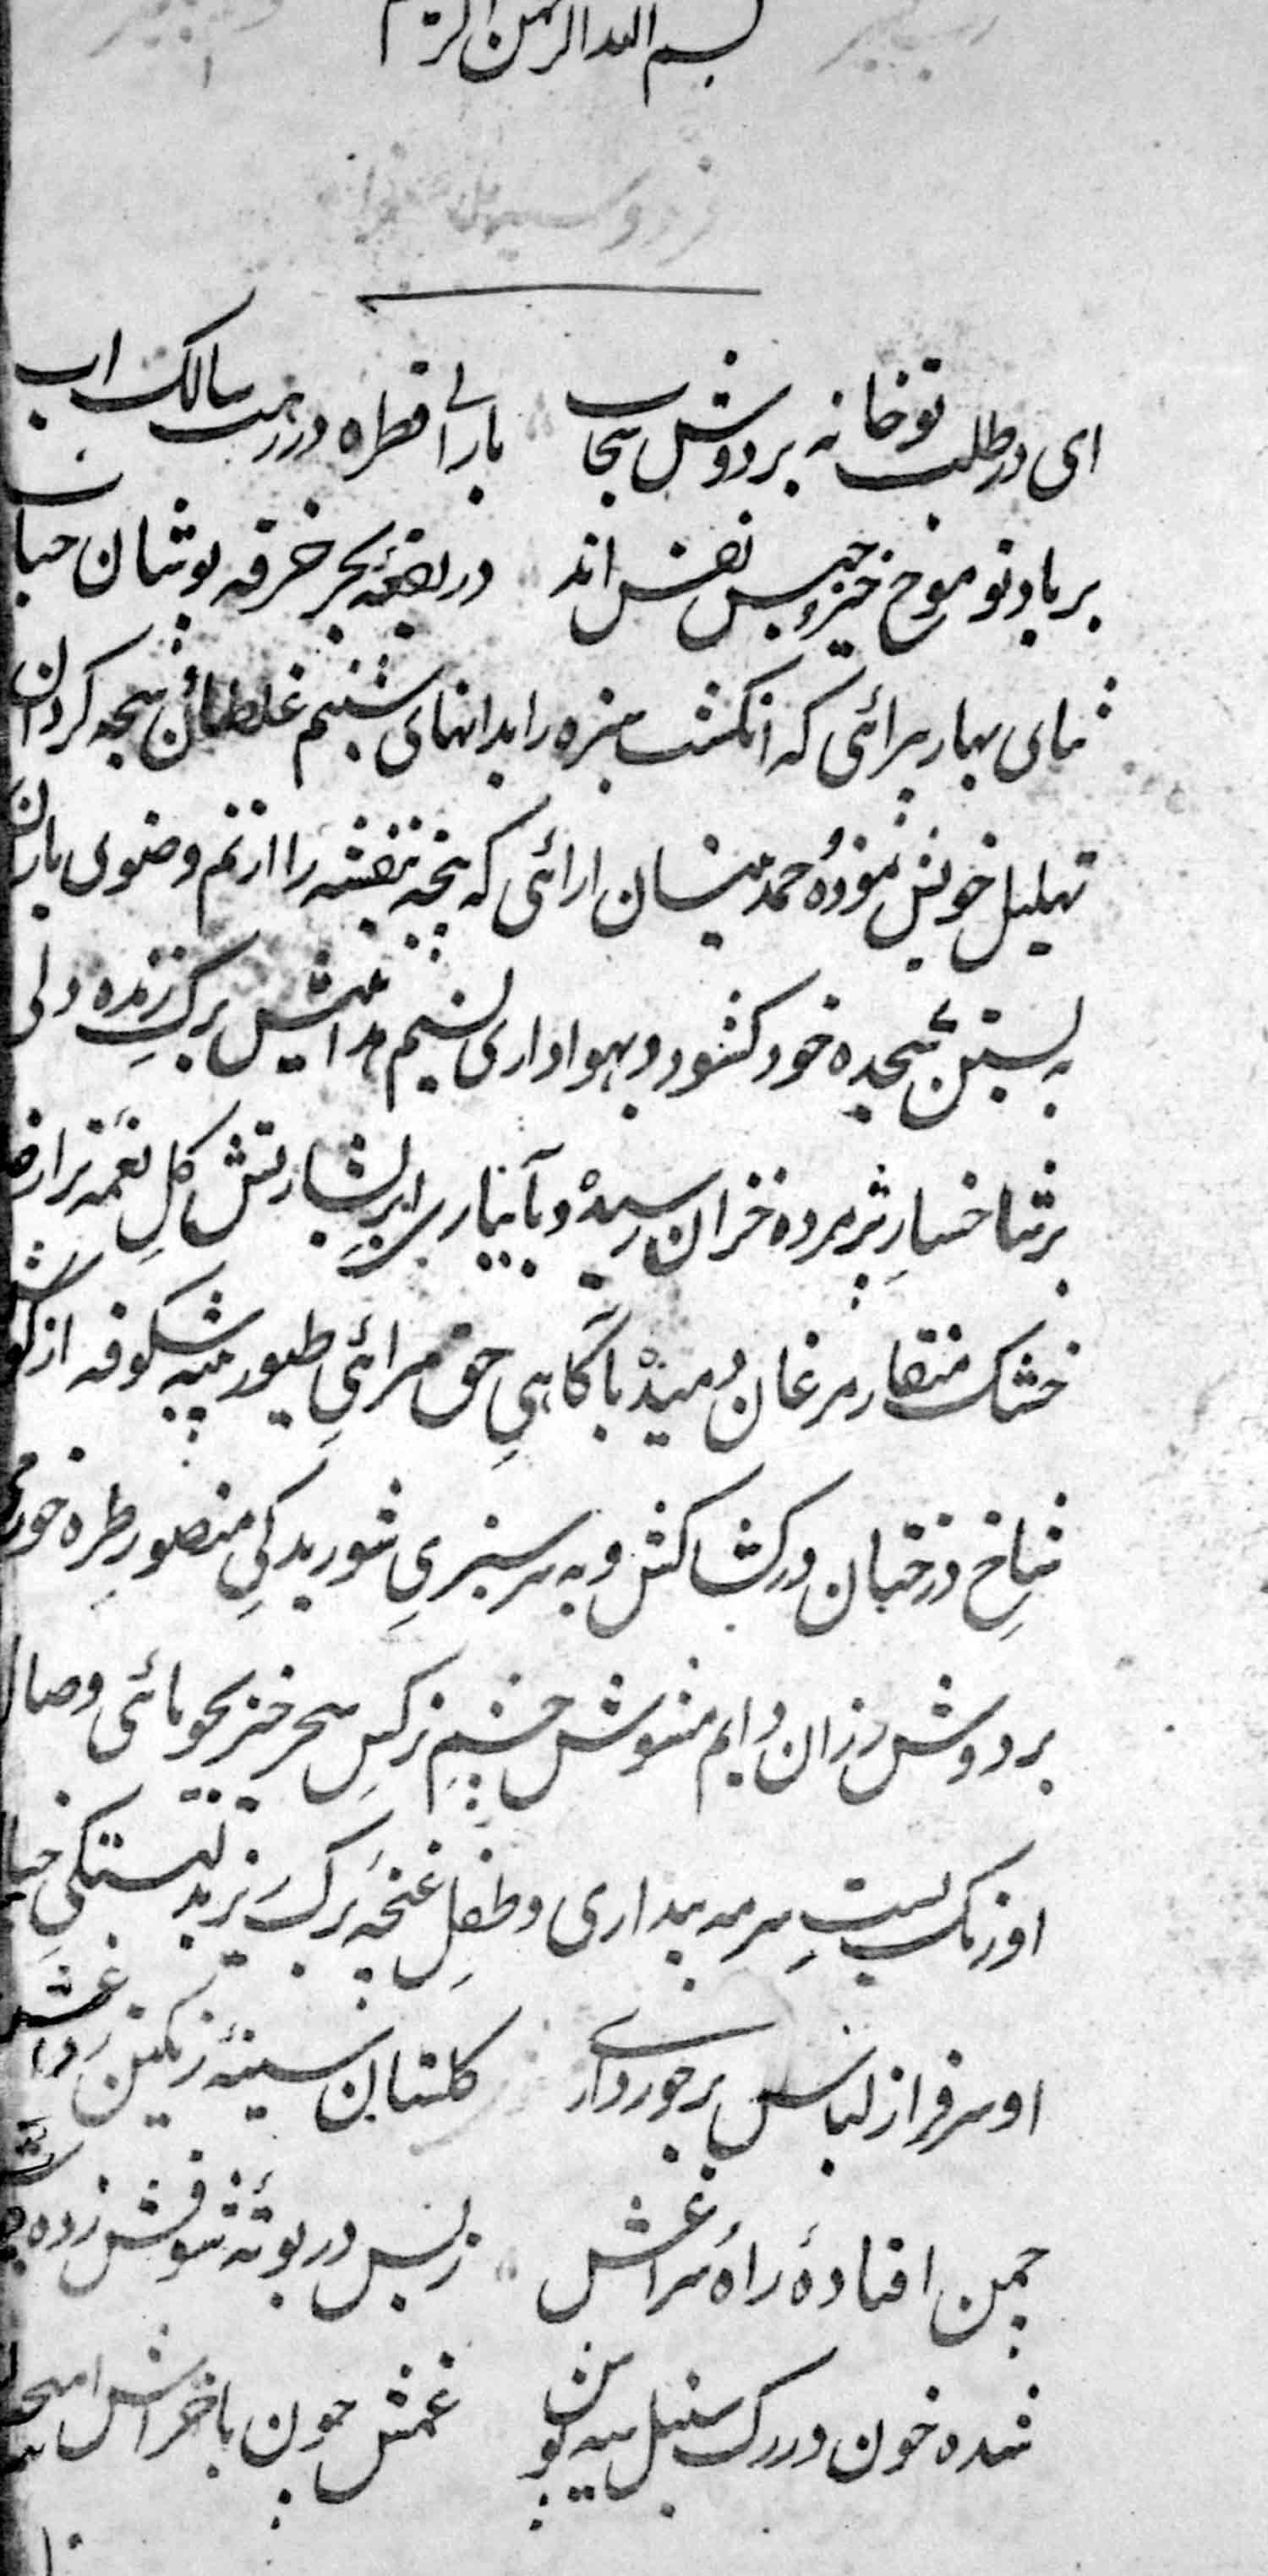 بسم الله الرحمن الرحیم
فردوسیه ملا طغرا
ای در طلبت تو خانه بر دوش سحاب باران قطره در رهت سالک آب
بر یاد تو موج خیز و حبس نفس اند در بقعهٔ بحر خرقه پوشان حباب
ثنای بهار پیرائی که انگشت سبزه را بدانهای شبنم غلطان سبحه گردان
تهلیل خویش نموده و حمد نیسان ارائی که پنجه بنفشه را از نم وضوی باران
به بستن سجده خود گشود و بهواداری نسیم هدایتش برگِ زنده دلی
بر شاخسارِ پژمرده خزان رسیده و بآبیاری ابر بشارتش گلِ نغمه تر از
خشک منقار مرغان دمیده بآگاهیِ حق سرائیِ طیور پنبه شکوفه از گوش
شاخِ درختان در کشاکش و به سرسبزیِ شوریدگیِ منصور طره
بر دوش رزان دایم مشوش چشمِ نرگسِ سحر خیز بجویائی وصال
او رنگ بستِ سرمه بیداری و طفلِ غنچه برگ ریز بدلبستگیِ
او سرفراز لباس برخورداری گلستان سینهٔ رنگین
چمن افتادهٔ راه سراغش ز بس در بوتهٔ شوقش زده
شده خون در رگ سنبل سیه پوش غمش چون با خراش